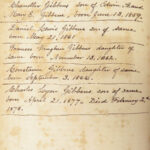 Chandler Gibbens son of Edwin. Aaand
Mary E. Gibbens born June 13. 1859.
Daniel Lewis Gibbens son of same
born May 21. 1861
Frances Vaughan Gibbens daughter of
same born November 13. 1862.
Constance Gibbens daughter of same
born September 3. 1866.
Charles Lyon Gibbens son of same
born April 21. 1877. Died February
1878.